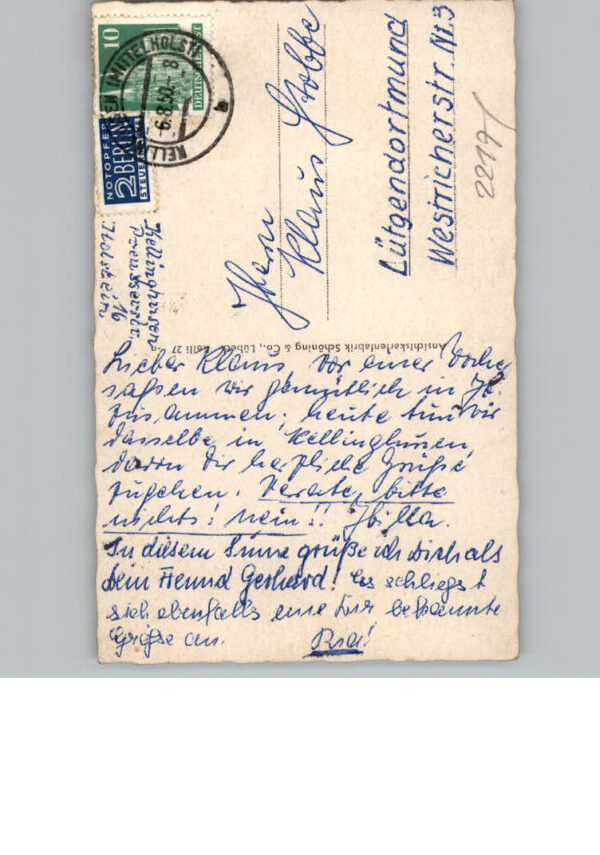 10
DEUTSCHE POST
KELLINGHUSEN (MITTELHOLST)
-6.8.50.-8
a
NOTOPFER
2 BERLIN
STEUERMARKE
Herrn
Klaus Grobbe
Lütgendortmund
Westricherstr. Nr. 3
2219
Kellinghusen
16
Holstein
Ansichtskartenfabrik Schöning & Co., Lübeck Kelli 27
Lieber Klaus, vor einer Woche
saßen wir gemütlich in
zusammen, heute tun wir
dasselbe in Kellinghusen,
davon Dir herzliche Grüße
zugehen. Verate, bitte
nichts! nein!!
In diesem Sinne grüße ich Dich als
Dein Freund Gerhard! Es schliesst
sich ebenfalls eine Dir bekannte
Grüße an.